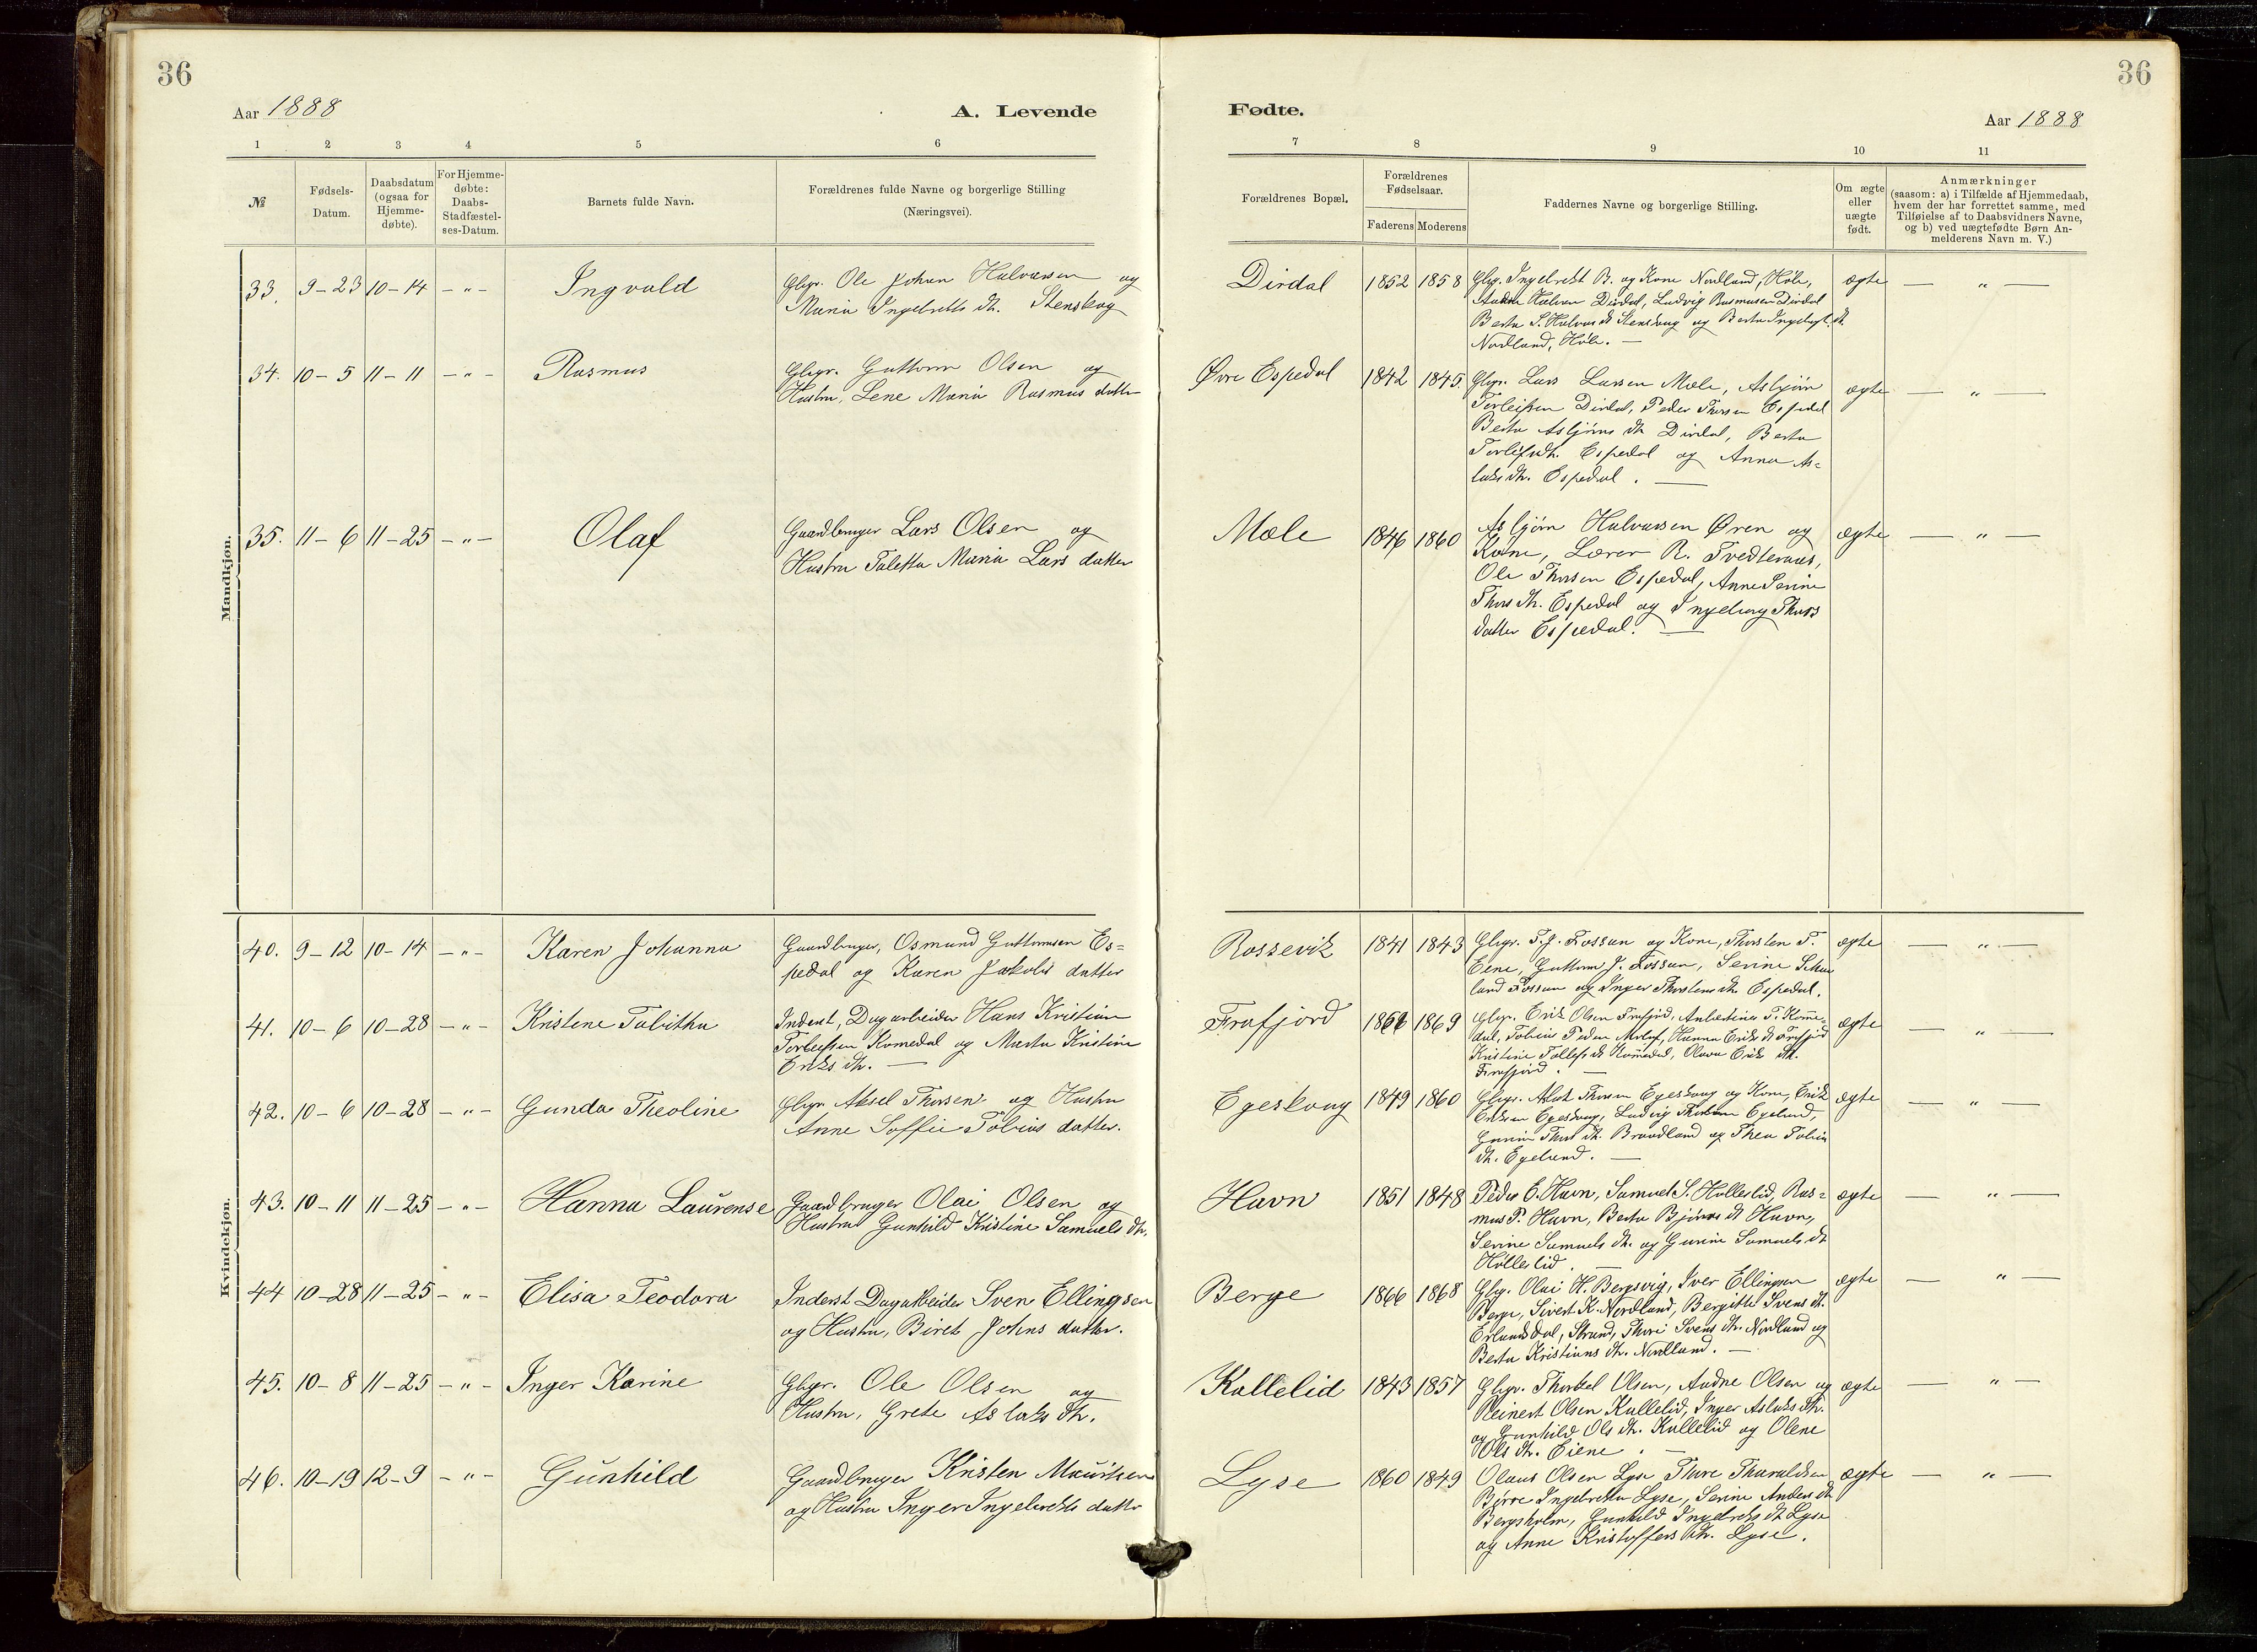 36
Aar 1888
A. Levende
1 2 3 4 5 6
№
Fødsels-
Datum.
Daabsdatum
(ogsaa for
Hjemme-
døbte).
For Hjemme-
døbte:
Daabs-
Stadfæstel-
ses-Datum.
Barnets fulde Navn.
Forældrenes fulde Navne og borgerlige Stilling
(Næringsvei).
Mandkjøn.
33. 9-23 10-14 -"- Ingvald Gbgr. Ole Johan Halvorsen og
Maria Ingebretts dtr. Stenskog
34. 10-5 11-11 -"- Rasmus Gbgr. Guttorm Olsen og
Hustru, Lene Maria Rasmus datter
35. 11-6 11-25 -"- Olaf Gaardbruger Lars Olsen og
Hustru Taletta Maria Lars datter
Kvindekjøn.
40. 9-12 10-14 -"- Karen Johanna Gaardbruger, Osmund Guttormsen Es=
pedal og Karen Jakobs datter
41. 10-6 10-28 -"- Kristene Tabitha Inderst, Dagarbeider Hans Kristian
Torleifsen Komedal og Marta Kristine
Eriks dtr.
42. 10-6 10-28 -"- Gunda Theoline Gbgr. Aksel Thorsen og Hustru
Anne Soffie Tobias datter.
43. 10-11 11-25 -"- Hanna Laurense Gaardbruger Olai Olsen og
Hustru Gunhild Kristine Samuels dtr.
44 10-28 11-25 -"- Elisa Teodora Inderst Dagarbeider Sven Ellingsen
og Hustru, Biret Johns datter.
45. 10-8 11-25 -"- Inger Karine Gbgr. Ole Olsen og
Hustru, Grete Aslaks dtr.
46. 10-19 12-9 -"- Gunhild Gaardbruger Kristen Mauritsen
og Hustru Inger Ingebrets datter
36
Fødte.
Aar 1888
7 8 9 10 11
Forældrenes Bopæl.
Forældrenes
Fødselsaar.
Faderens Moderens
Faddernes Navne og borgerlige Stilling.
Om ægte
eller
uægte
født.
Anmærkninger
(saasom: a) i Tilfælde af Hjemmedaab,
hvem der har forrettet samme, med
Tilføielse af to Daabsvidners Navne,
og b) ved uægtefødte Børn An-
melderens Navn m. V.)
Dirdal 1852 1858 Gbgr. Ingebret B. og Kone Nordland, Høle, ægte — " —
Halvor Dirdal, Ludvig Rasmusen Dirdal
Berta S. Halvors dt Stenskog og Berta Ingeborg dt.
Nordland, Høle. —
Øvre Espedal 1842 1845. Gbgr. Lars Larsen Mæle, Asbjørn ægte — " —
Torleifsen Dirdal, Peder Thorsen Espedal
Berta Asbjørns dtr Dirdal, Berta
Torleifs dtr. Espedal og Anna As=
laks dtr. Espedal. —
Mæle 1846 1860 Asbjørn Halvorsen Øren og ægte — " —
Kone, Lærer R. Tvedteraas,
Ole Thorsen Espedal, Anne Serine
Thors dtr. Espedal og Ingeborg Thors
datter Espedal. —
Rossevik 1841 1843 Gbgr. T. J. Fossan og Kone, Thorsten T. ægte — " —
Eine, Guttorm J. Fossan, Serine
land Fossan og Inger Thorstens dtr Espedal.
Frafjord 1869 Gbgr. Erik Olsen Frafjord, T. Kome= ægte — " —
dal, Tobias Pedersen Hanna Eriks dt Frafjord
Kristine Tollefs dt Komedal, Olava Eriks dtr.
Frafjord. —
Egeskaug 1849 1860 Gbgr. Thorsen Egeskaug og Kone, Erik ægte — " —
Eriksen Egeskaug, Ludvig Egeland,
Gurine Thors dtr. Braadland og Thea Tobias
dtr. Egeland. —
Havn 1851 1848 Peder E. Havn, Samuel S. Hølleslid, Ras= ægte — " —
mus P. Havn, Berta Bjørns dt Havn,
Serine Samuels dtr. og Gurine Samuels dt
Hølleslid. —
Berge 1866 1868 Gbgr. Olai H. Bergsvig, Iver Ellingsen ægte — " —
Berge, Sivert K. Nordland, Bergitte Svens dt.
Erlandsdal, Strand, Thore Svens dtr. Nordland og
Berta Kristians dtr. Nordland. —
Kallelid 1843 1857 Gbgr. Thorkel Olsen, Audne Olsen og ægte — " —
Reinert Olsen Kallelid, Inger Aslaks dtr.
og Gunhild Ols dtr. Kallelid og Olene
Ols dtr. Eiene. —
Lyse 1860 1849 Olaus Olsen Lyse Thore Tharaldsen ægte — " —
Børre Ingebretsen Lyse, Serine Anders dt
Bergsholm, Gunhild Ingebrets dt Lyse
og Anne Kristoffers dtr. Lyse.